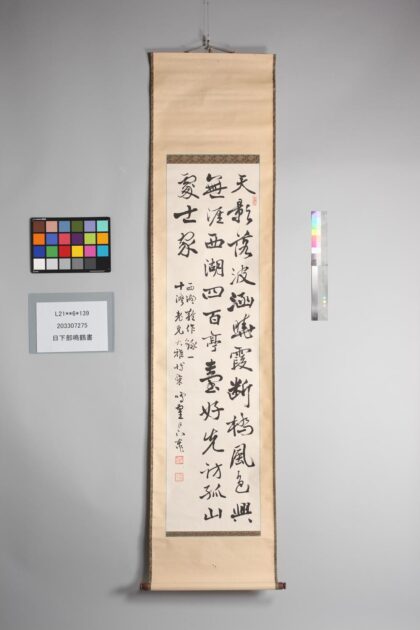 天影落波涵曉霞断橋風色興
無涯西湖四百亭臺好先訪孤山
處士家
西湖雜作録一
十湾老兄大雅
L21**6*139
203307275
日下部鳴鶴書